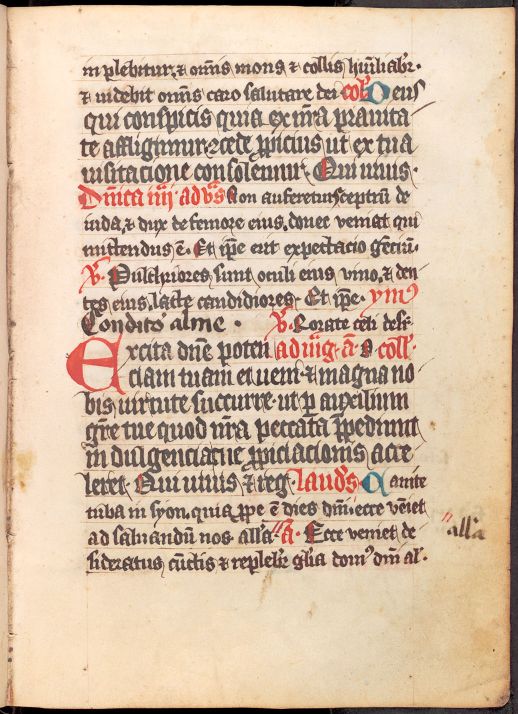 in plebitur. & om̄is mons & collis hūiliabr̄.
& videbit om̄is caro salutare dei coll̄ Deus
qui conspicis quia ex nr̄a prauita
te affligimur. ꝯcede ꝓpicius ut ex tua
uisitacione consolemur. Qui uiuis.
Dn̄ica iiij. adu͛s Non auferetur sceptrū de
iuda. & dux de femore eius, donec veniat qui
mittendus ē. Et ip̄e erit expectacio gēciū.
V̶. Pulchriores sunt oculi eius vino. & den
tes eius, lacte candidiores. Et ip̄e. ymꝰ
Conditor alme. V̶. Rorate celi desꝑ.
Excita dn̄e poten ad mḡ. a᷃. O coll̄.
ciam tuam et ueni & magna no
bis uirtute succurre. ut ꝑ auxilium
gr̄e tue quod nr̄a peccata p̄pediunt
in dulgencia tue ꝓpiciacionis acce
leret. Qui uiuis & reg. Laud͛s. Canite
tuba in syon. quia ꝓpe ē dies dn̄i. ecce veniet
ad saluandū nos all͛a. A᷃. Ecce veniet de
sideratus cūctis & replebr̄ glīa domꝰ dn̄i al͛.
all͛a